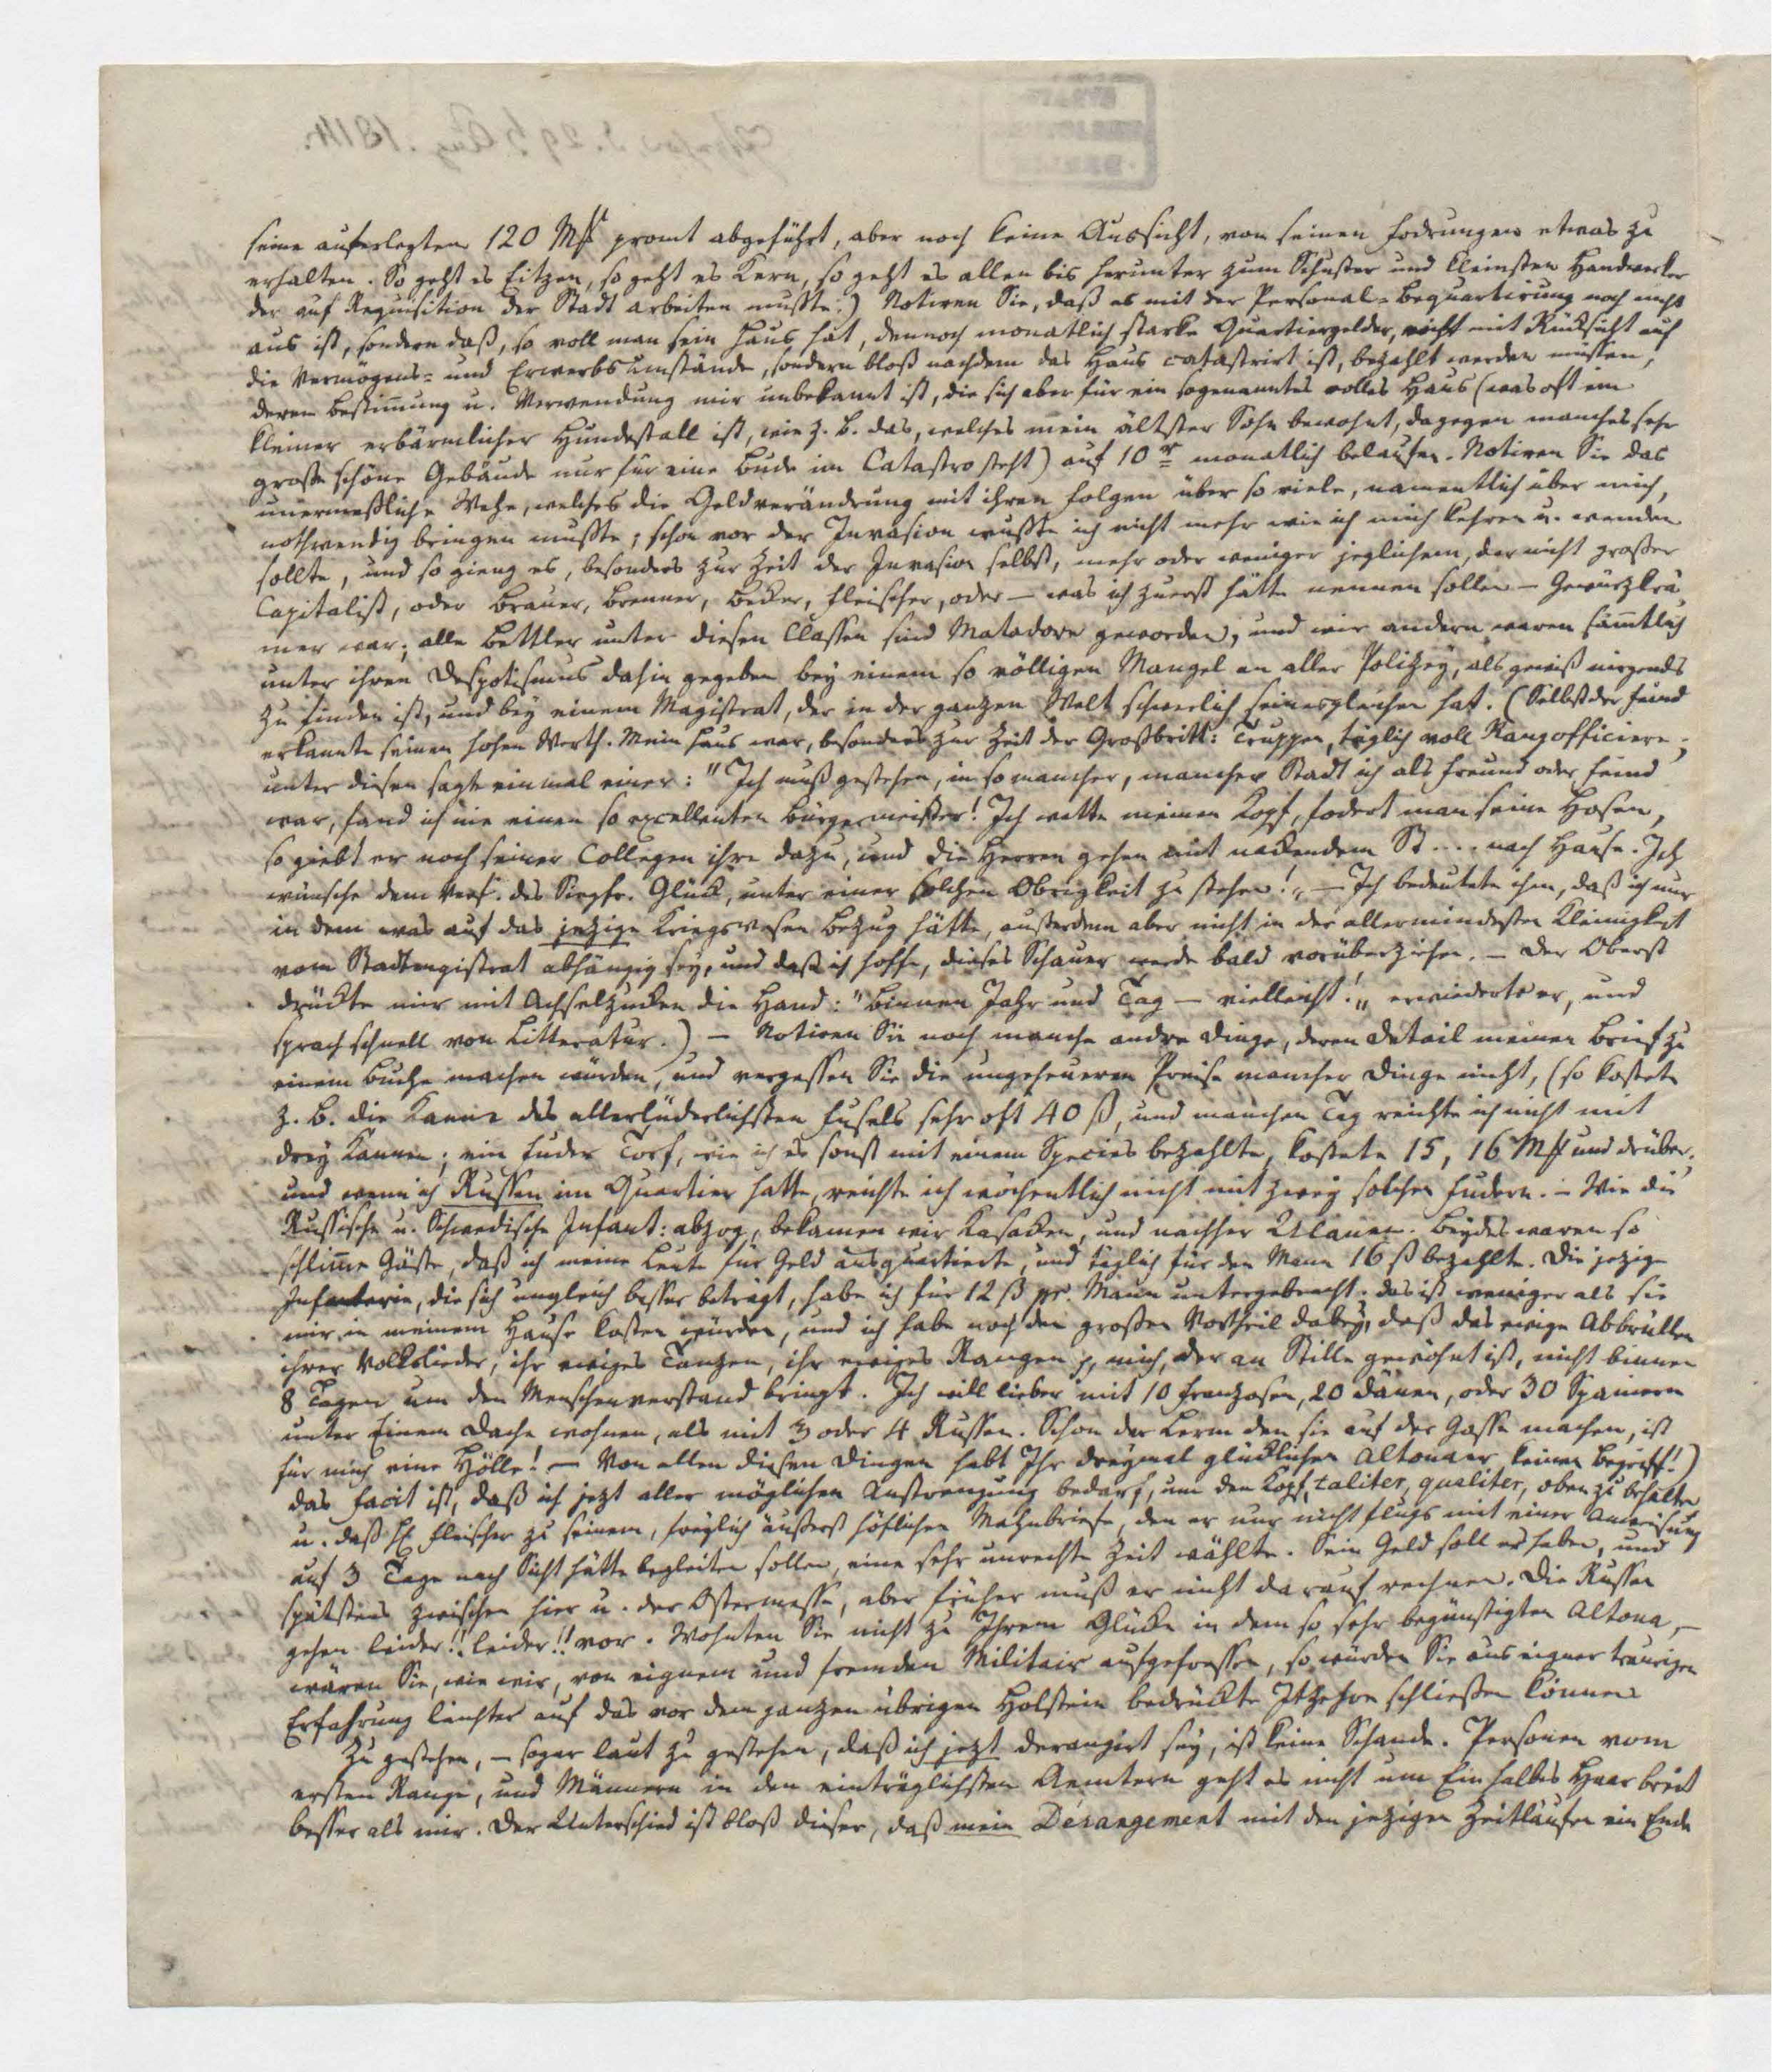 seine auferlegten 120 M# promt abgeführt, aber noch keine Aussicht, von seinen Fodrungen etwas zu
erhalten. So geht es Eitzen, so geht es Kern, so geht es allen bis herunter zum Schuster und kleinsten Handwerker
der auf Requisition der Stadt arbeiten mußte.) Notiren Sie, daß es mit der Personal-Bequartirung noch nicht
aus ist, sondern daß, so voll man sein Haus hat, dennoch monatlich starke Quartiergelder, nicht mit Rücksicht auf
die Vermögens- und Erwerbsumstände, sondern bloß nachdem das Haus catastrirt ist, bezahlt werden müssen,
deren Bestimung u. Verwendung mir unbekannt ist, die sich aber für ein sogenanntes volles Haus (was oft ein
kleiner erbärmlicher Hundestall ist, wie z. B. das, welches mein ältster Sohn bewohnt, dagegen manches sehr
große schöne Gebäude nur für eine Bude im Catastro steht) auf 10 monatlich belaufen. Notiren Sie das
unermeßliche Wehe, welches die Geldverändrung mit ihren Folgen über so viele, namentlich über mich,
nothwendig bringen mußte; schon vor der Invasion wußte ich nicht mehr wie ich mich kehren u. wenden
sollte, und so gieng es, besonders zur Zeit der Invasion selbst, mehr oder weniger jeglichem, der nicht großer
Capitalist, oder Brauer, Brenner, Becker, Fleischer, oder — was ich zuerst hätte nennen sollen — Gewürzkrä
mer war; alle Bettler unter diesen Classen sind Matadore geworden, und wir andern waren sämmtlich
unter ihren Despotismus dahin gegeben bey einem so völligen Mangel an aller Polizey, als gewiß nirgends
zu finden ist, und bey einem Magistrat, der in der ganzen Welt schwerlich seinesgleichen hat. (Selbst der Feind
erkannte seinen hohen Werth. Mein Haus war, besonders zur Zeit der Großbritt: Truppen, täglich voll Rangofficiere;
unter diesen sagte einmal einer: "Ich muß gestehen, in so mancher, mancher Stadt ich als Freund oder Feind
war, fand ich nie einen so excellenten Bürgermeister! Ich wette meinen Kopf, fodert man seine Hosen,
so giebt er noch seiner Collegen ihre dazu, und die Herren gehen mit nackendem St.... nach Hause. Ich
wünsche dem Verf. des Siegfr. Glück, unter einer solchen Obrigkeit zu stehen!„ — Ich bedeutete ihm, daß ich nur
in dem was auf das jezige Kriegswesen Bezug hätte, außerdem aber nicht in der allermindesten Kleinigkeit
vom Stadtmagistrat abhängig sey, und daß ich hoffe, dieses Schauer werde bald vorüberziehen. — Der Oberst
drückte mir mit Achselzucken die Hand: "Binnen Jahr und Tag — vielleicht!„ erwiederte er, und
sprach schnell von Litteratur.) — Notiren Sie noch manche andre Dinge, deren Detail meinen Brief zu
einem Buche machen würden, und vergessen Sie die ungeheueren Preise mancher Dinge nicht, (so kostete
z. B. die Kanne des allerlüderlichsten Fusels sehr oft 40 ß, und manchen Tag reichte ich nicht mit
drey Kannen; ein Fuder Torf, wie ich es sonst mit einem Species bezahlte, kostete 15, 16 M# und drüber,
und wenn ich Russen im Quartier hatte, reichte ich wöchentlich nicht mit zwey solchen Fudern. — Wie die
Russische u. Schwedische Infant: abzog, bekamen wir Kasacken, und nachher Ulanen. Beydes waren so
schlime Gäste, daß ich meine Leute für Geld ausquartierte, und täglich für den Mann 16 ß bezahlte. Die jezige
Infanterie, die sich ungleich besser beträgt, habe ich für 12 ß pr. Mann untergebracht. das ist weniger als sie
mir in meinem Hause kosten würden, und ich habe noch den großen Vortheil dabey, daß das ewige Abbrüllen
ihrer Volkslieder, ihr ewiges Tanzen, ihr ewiges Rangen p, mich, der an Stille gewöhnt ist, nicht binnen
8 Tagen um den Menschenverstand bringt. Ich will lieber mit 10 Franzosen, 20 Dänen, oder 30 Spaniern
unter Einem Dache wohnen, als mit 3 oder 4 Russen. Schon der Lerm den sie auf der Gasse machen, ist
für mich eine Hölle! — Von allen diesen Dingen habt Ihr dreymal glücklichen Altonaer keinen Begriff!)
das Facit ist, daß ich jezt aller möglichen Anstrengung bedarf, um den Kopf, taliter, qualiter, oben zu behalten
u. daß H Fleischer zu seinem, freylich äußerst höflichen Mahnbriefe, den er nur nicht flugs mit einer Anweisung
auf 3 Tage nach Sicht hätte begleiten sollen, eine sehr unrechte Zeit wählte. Sein Geld soll er haben, und
spätstens zwischen hier u. der Ostermesse, aber früher muß er nicht darauf rechnen. Die Russen
gehen leider!! leider!! vor. Wohnten Sie nicht zu Ihrem Glücke in dem so sehr begünstigten Altona, —
wären Sie, wie wir, von eignem und fremden Militair aufgefressen, so würden Sie aus eigner traurigen
Erfahrung leichter auf das vor dem ganzen übrigen Holstein bedrückte Itzehoe schließen können
Zu gestehen, — sogar laut zu gestehen, daß ich jezt derangirt sey, ist keine Schande. Personen vom
ersten Range, und Männern in den einträglichsten Aemtern geht es nicht um Ein halbes Haar breit
besser als mir. Der Unterschied ist bloß dieser, daß mein Dérangement mit den jezigen Zeitläufen ein Ende